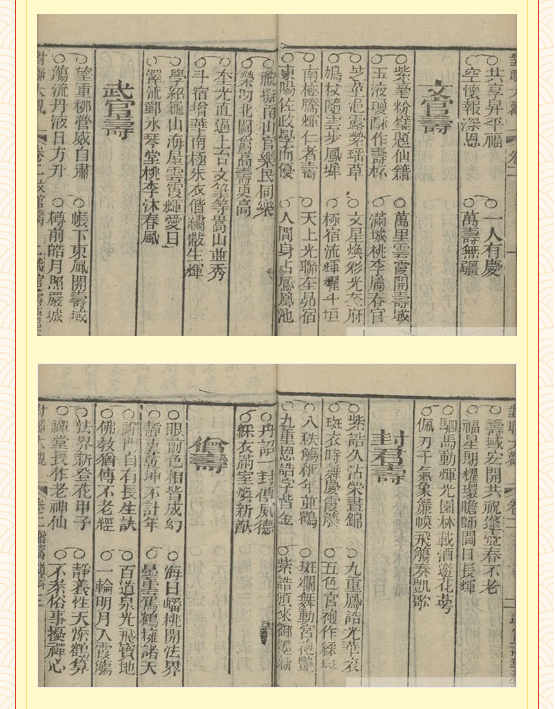 共享昇平福 一人有慶
空懷報深恩 萬壽無疆
文官壽
紫毫粉壁題仙籍 萬里雲霞開壽域
玉液瓊酥作壽杯 滿城桃李屬春官
芝草浥露縈瑤草 文星煥彩光奎府
鳩杖隨雲步鳳墀 極宿流輝耀斗垣
南極騰輝仁者壽 天上光聯奎昴宿
東陽佐政學而優 人間身占鳳凰池
祝擬南山官樂民同樂
榮叨北闕爵高壽更高
奎光直逼上台文筆等嵩山並秀
斗宿增華南極朱衣偕繡黻生輝
學紹龜山海屋雲霞輝愛日
澤流鄴水琴堂桃李沐春風
武官壽
望重柳營威自肅 帳下東風開壽域
觴流丹液日方升 樽前皓月照嚴城
壽域宏開共祝蓬壺春不老
福星朗耀環瞻師閫日長輝
駟馬動輝光園林載酒遊花
佩刀干氣象簾幌飛觴奏凱歌
封君壽
紫誥久沾榮晝錦 九重鳳誥光華袞
斑衣時舞慶霞觴 五色宮袍作綵斑
八秩觴稱年並鶴 斑斕舞動宮袍艷
九重恩誥字皆金 紫誥頒來御墨新
丹詔一封傳風德
綵衣滿室煥新猷
僧壽
眼前色相皆成幻 海日蟠桃開法界
靜裏乾坤不計年 星雲鸞鶴擁諸天
禪門自有長生訣 百道泉光飛寶地
佛教猶傳不老經 一輪明月入霞觴
法界新登花甲子 靜養性天添鶴算
禪堂長作老神仙 俗事擾禪心